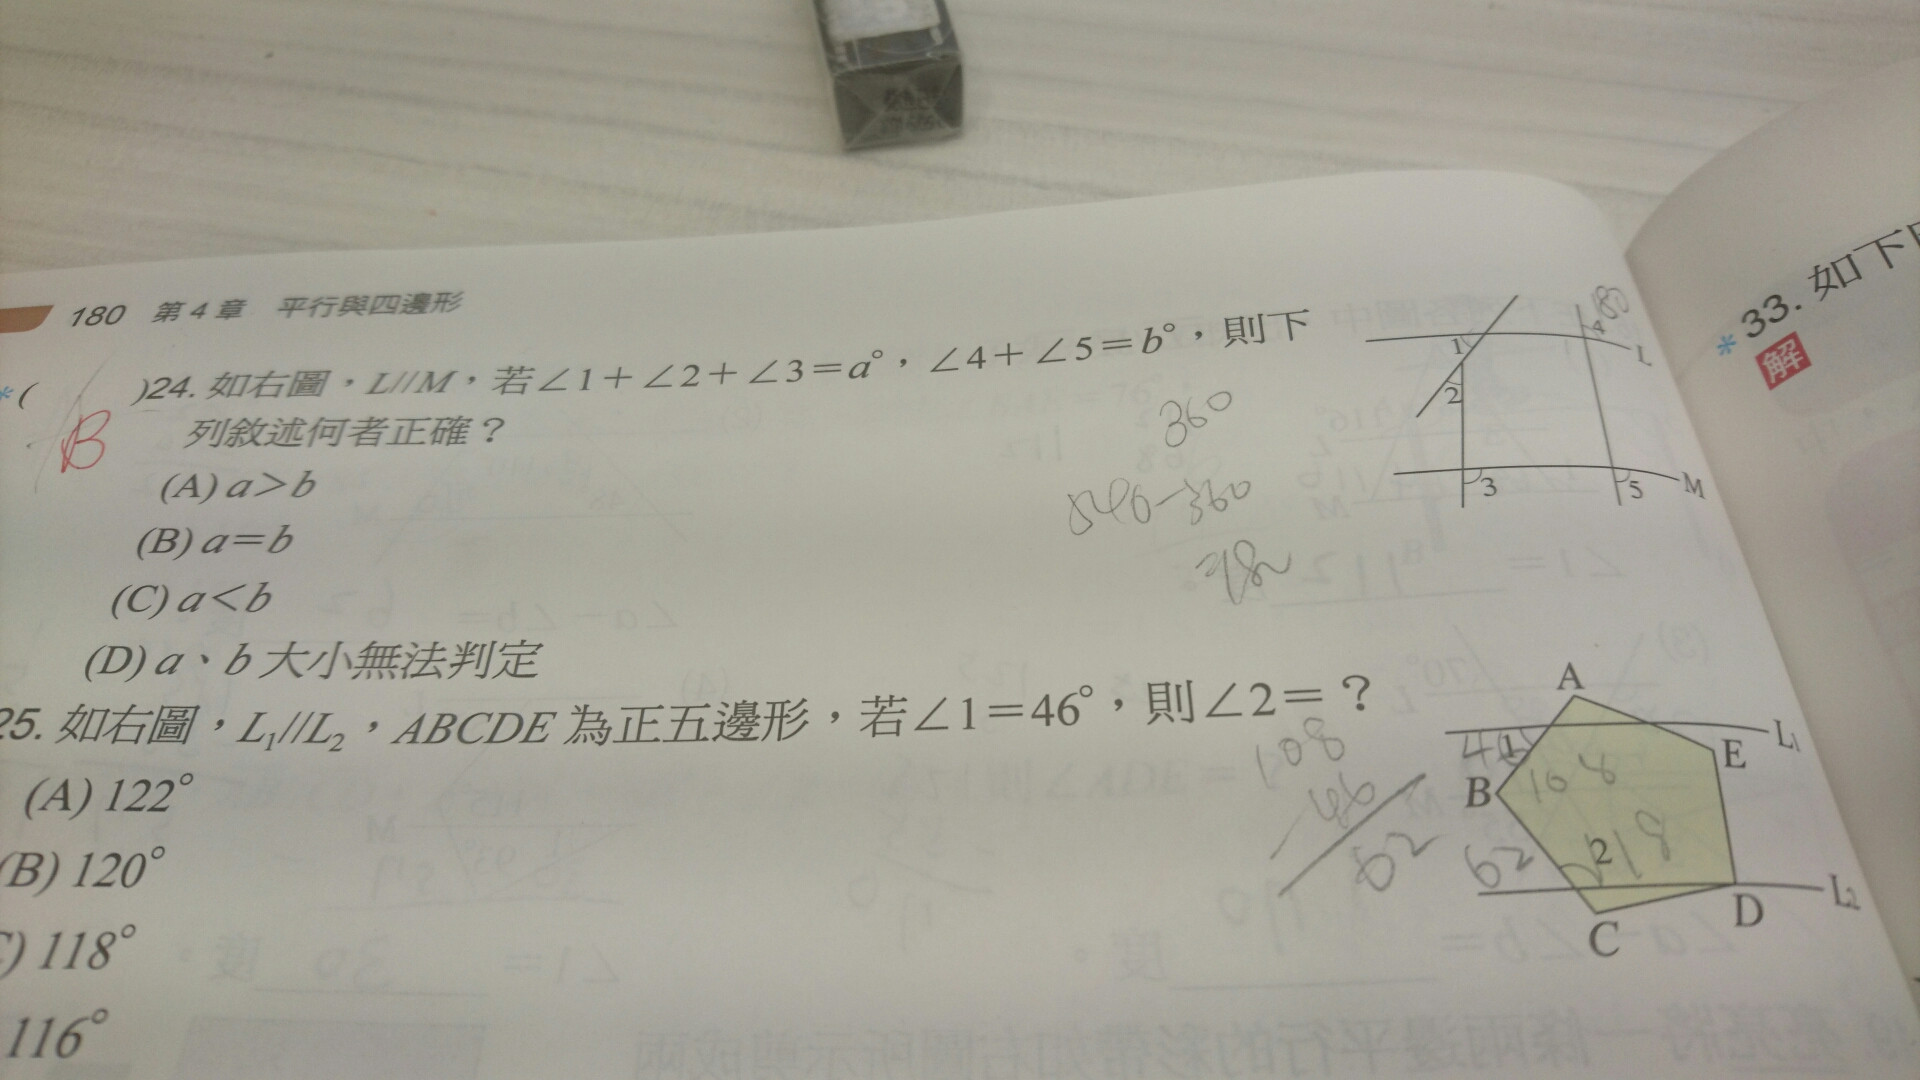 180 第4章 平行與四邊形
*( )24. 如右圖，L//M，若∠1+∠2+∠3=a°，∠4+∠5=b°，則下
B
列敘述何者正確？
(A) a>b
(B) a=b
(C) a<b
(D) a、b 大小無法判定
360
540-360
1
2
3
4
5
L
M
180
25. 如右圖，L₁//L₂，ABCDE 為正五邊形，若∠1=46°，則∠2=？
(A) 122°
(B) 120°
) 118°
116°
108
62
A
B
C
D
E
L₁
L₂
1
2
108
62
118
*33. 如下
解